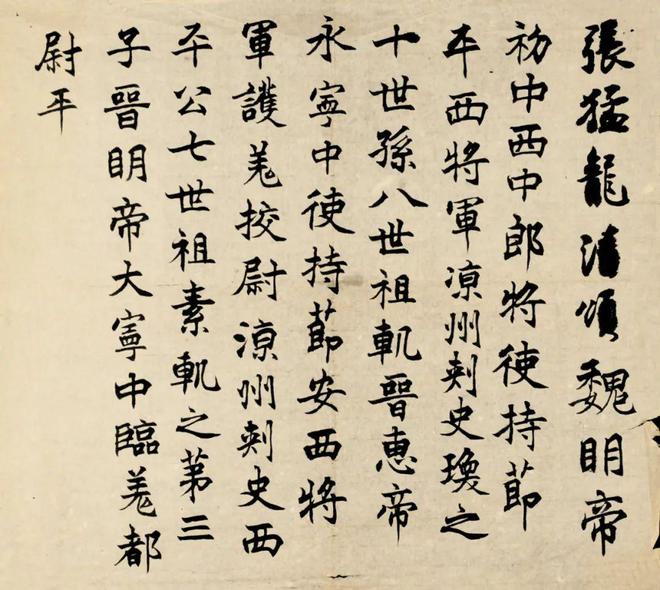 張猛龍清頌魏眀帝
初中西中郎将使持莭
平西将軍涼州刾史瓊之
十世孫八世祖軌晉恵帝
永寧中使持莭安西将
軍護羌挍尉涼州刾史西
平公七世祖素軌之苐三
子晉眀帝大寧中臨羌都
尉平